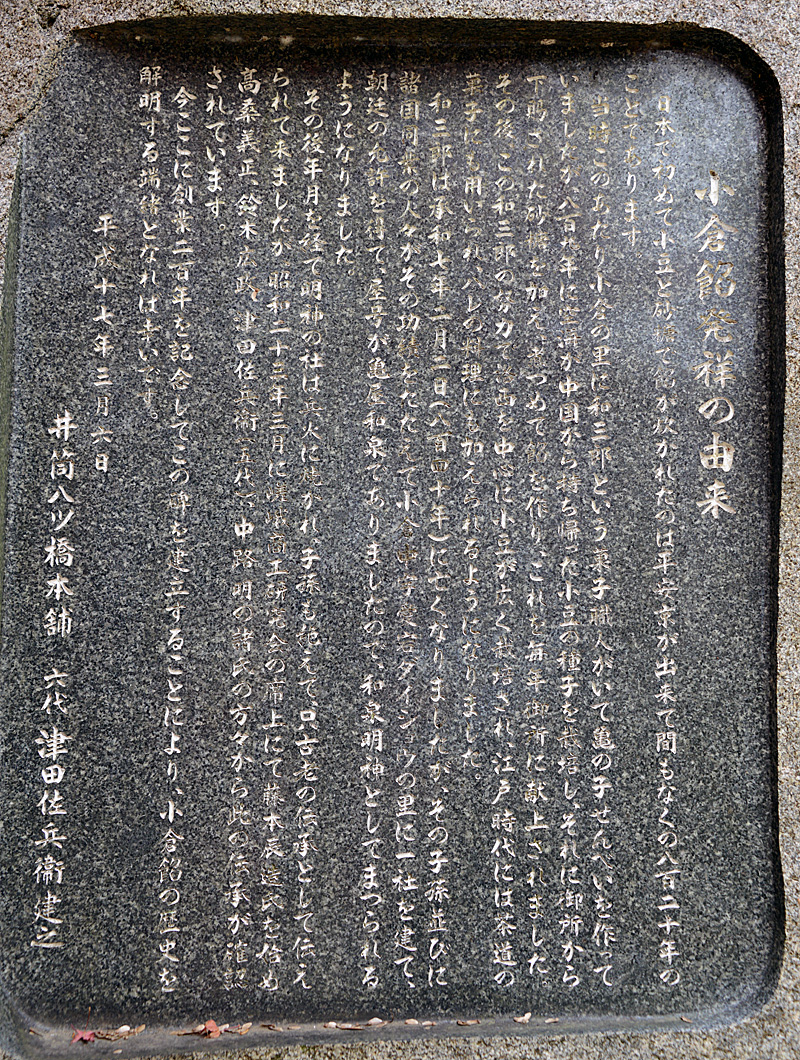 小倉餡発祥の由来
日本で初めて小豆と砂糖で餡が炊かれたのは平安京が出来て間もなくの八百二十年の
ことであります。
当時このあたり小倉の里に和三郎という菓子職人がいて亀の子せんべいを作って
いましたが、八百九年に空海が中国から持ち帰った小豆の種子を栽培し、それに御所から
下賜された砂糖を加え、煮つめて餡を作り、これを毎年御所に献上されました。
その後、この和三郎の努力で洛西を中心に小豆が広く栽培され、江戸時代には茶道の
菓子にも用いられ、ハレの料理にも加えられるようになりました
和三郎は承和七年二月二日(八百四十年)に亡くなりましたが、その子孫並びに
諸国同業の人々がその功績をたたえて小倉中字愛宕ダイショウの里に一社を建て、
朝廷の允許を得て、屋号が亀屋和泉でありましたので、和泉明神としてまつられる
ようになりました。
その後年月を経て明神の社は兵火に焼かれ、子孫も絶えて、只古老の伝承として伝え
られて来ましたが、昭和二十三年三月に嵯峨商工研究会の席上にて藤木辰造氏を始め
高桑義正、鈴木広政、津田佐兵衛(五代)、中路明の諸氏の方々から此の伝承が確認
されています。
今ここに創業二百年を記念してこの碑を建立することにより、小倉餡の歴史を
解明する端緒となれば幸いです。
平成十七年三月六日
井筒八ッ橋本舗 六代 津田佐兵衞 建之